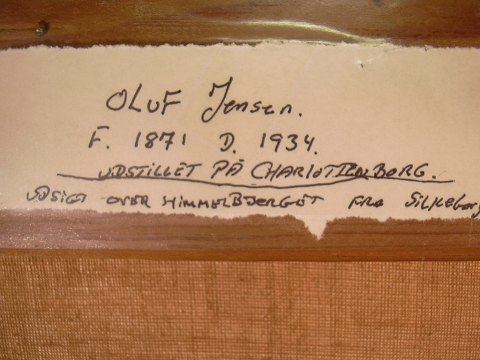 OLUF Jensen.
F. 1871 D. 1934.
UDSTILLET PÅ CHARLOTTENBORG.
UDSIGT OVER HIMMELBJERGET FRA Silkeborg